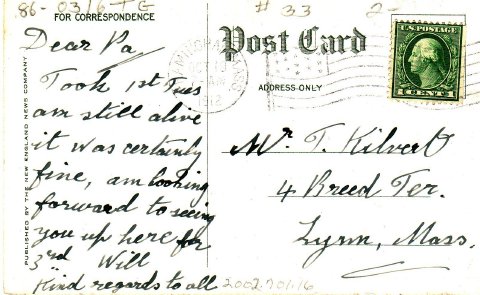 86-0316-TG
# 33
2-
FOR CORRESPONDENCE
Dear Pa,
Took 1st Tues
am still alive
it was certainly
fine, am looking
forward to seeing
you up here for
3rd Will
Kind regards to all
2002.701.16
PUBLISHED BY THE NEW ENGLAND NEWS COMPANY
Post Card
ADDRESS ONLY
1912
U.S. POSTAGE
1 CENT 1
Mr T. Kilvert
4 Breed Ter.
Lynn, Mass.